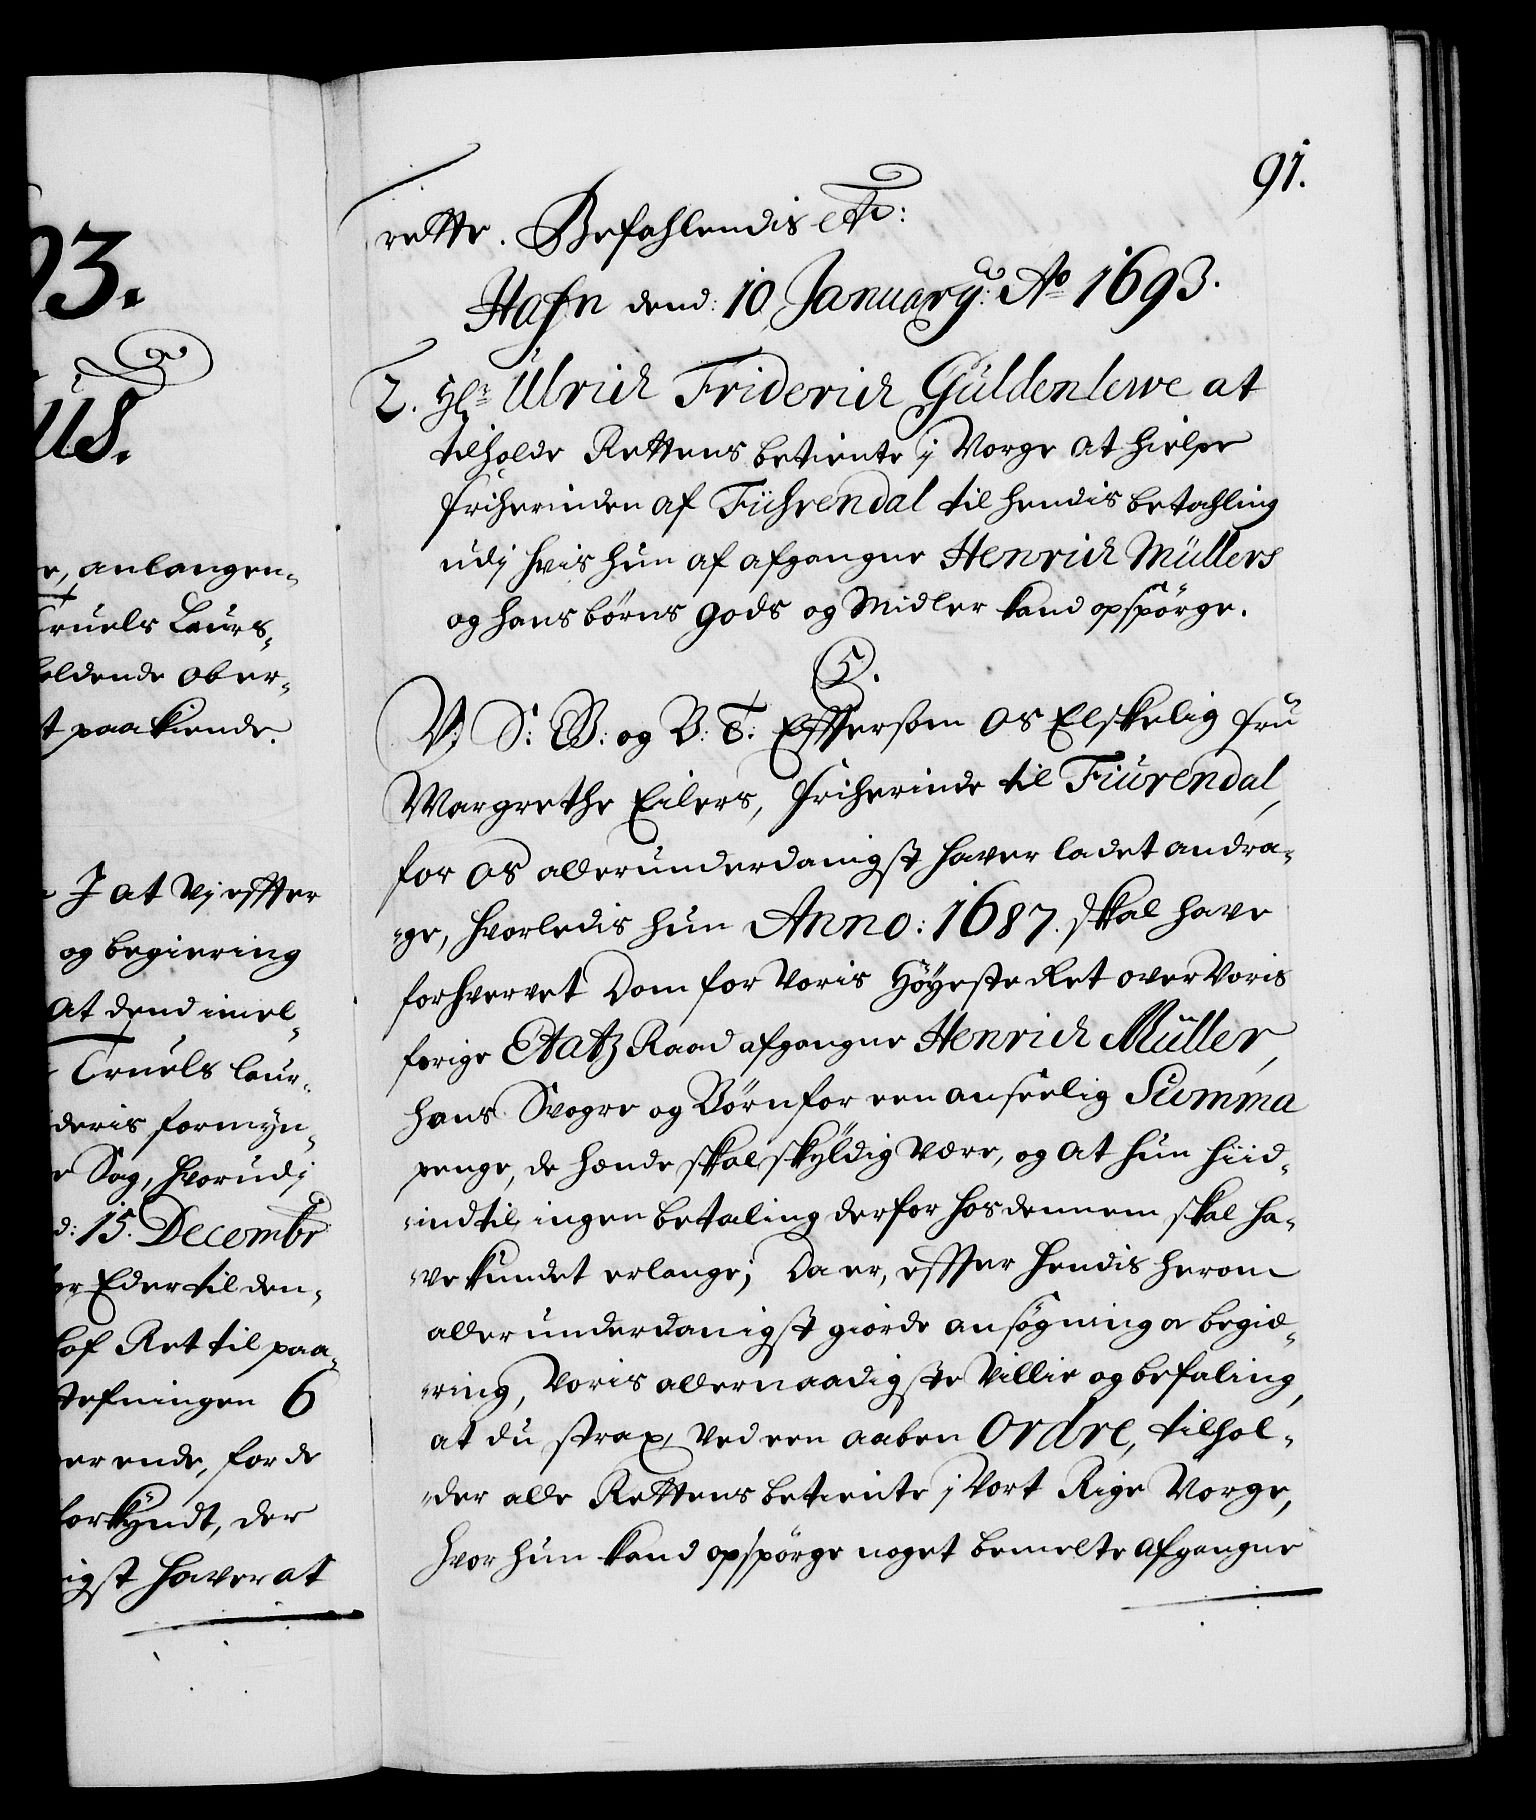 93.
us.
e, anlangen-
Truels Laurs-
holdende ober-
t paakiende.
I at Vi effter
og begiering
at dend imel-
Truels Laur-
deris formyn-
Sag, hvorudj
d: 15. Decembr
Eder til den-
hof Ret til paa-
stefningen 6
er ende, for de
forkyndt, der
igst haver at
91.
rette. Befahlendis etc:
Hafn dend: 10 January: Ao 1693.
2. Hr Ulrich Friderich Güldenlewe at
tilholde Rettens betiente j Norge at hielpe
friherinden af Führendal til hendis betahling
udj hvis hun af afgangne Henrich Müllers
og hans börns gods og Midler kand opspörge.
C5.
V: S: G: og B: T: EffterSom os Elskelig fru
Margrethe Eilers, friherinde til Fiurendal,
for os allerunderdanigst haver ladet andra-
-ge, hvorledis hun Anno: 1687. skal have
forhvervet Dom for Voris Höyeste Ret over Voris
forige Etatz Raad afgangne Henrich Müller,
hans Svogre og Börn for een anseelig Summa
penge, de hende skal skyldig være, og at hun hiid-
-indtil ingen betaling derfor hos dennem skal ha-
-ve kundet erlange; Da er, effter hendis herom
allerunderdanigst giorde ansögning og begie-
-ring, Voris allernaadigste Villie og befaling,
at du strax, ved een aaben Ordre, tilhol-
-der alle Rettens betiente j Vort Rige Norge,
hvor hun kand opspörge noget bemelte afgangne